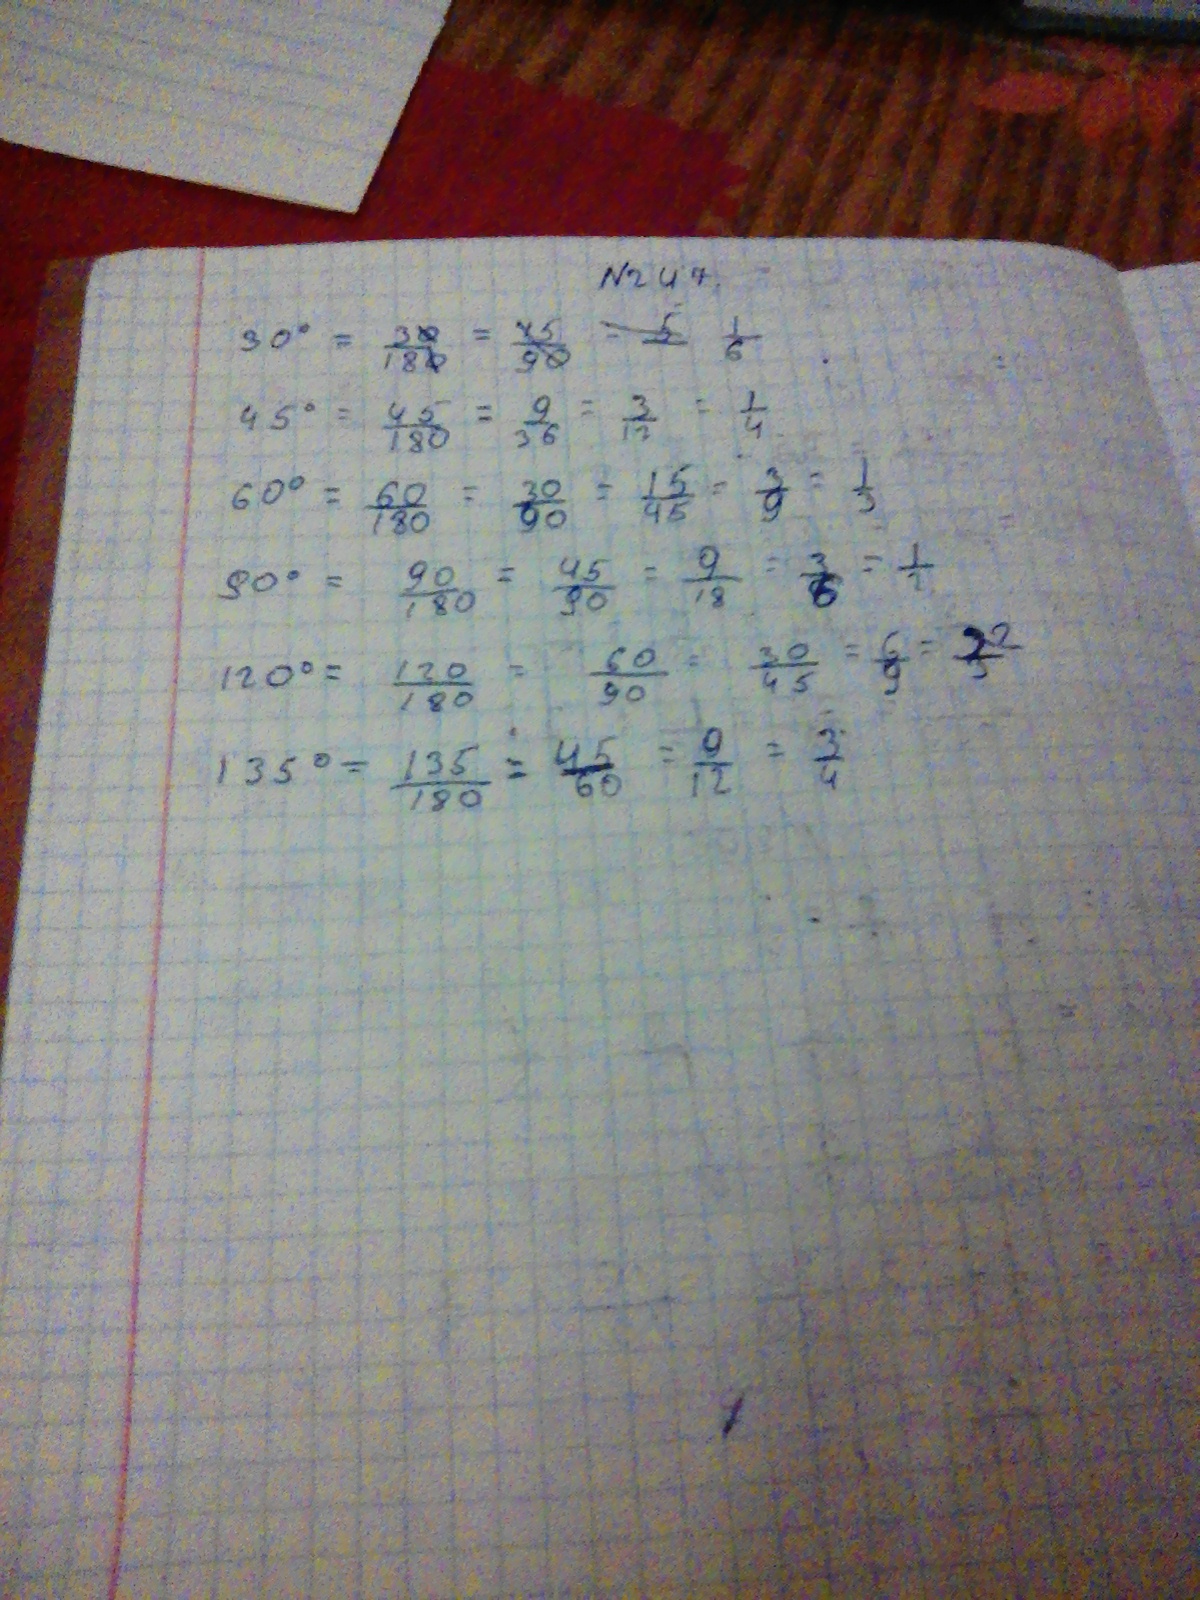 N247.
30° = 30/180 = 15/90 = 5 1/6
45° = 45/180 = 9/36 = 3/12 = 1/4
60° = 60/180 = 30/90 = 15/45 = 3/9 = 1/3
90° = 90/180 = 45/90 = 9/18 = 3/6 = 1/2
120° = 120/180 = 60/90 = 30/45 = 6/9 = 2/3
135° = 135/180 = 45/60 = 9/12 = 3/4